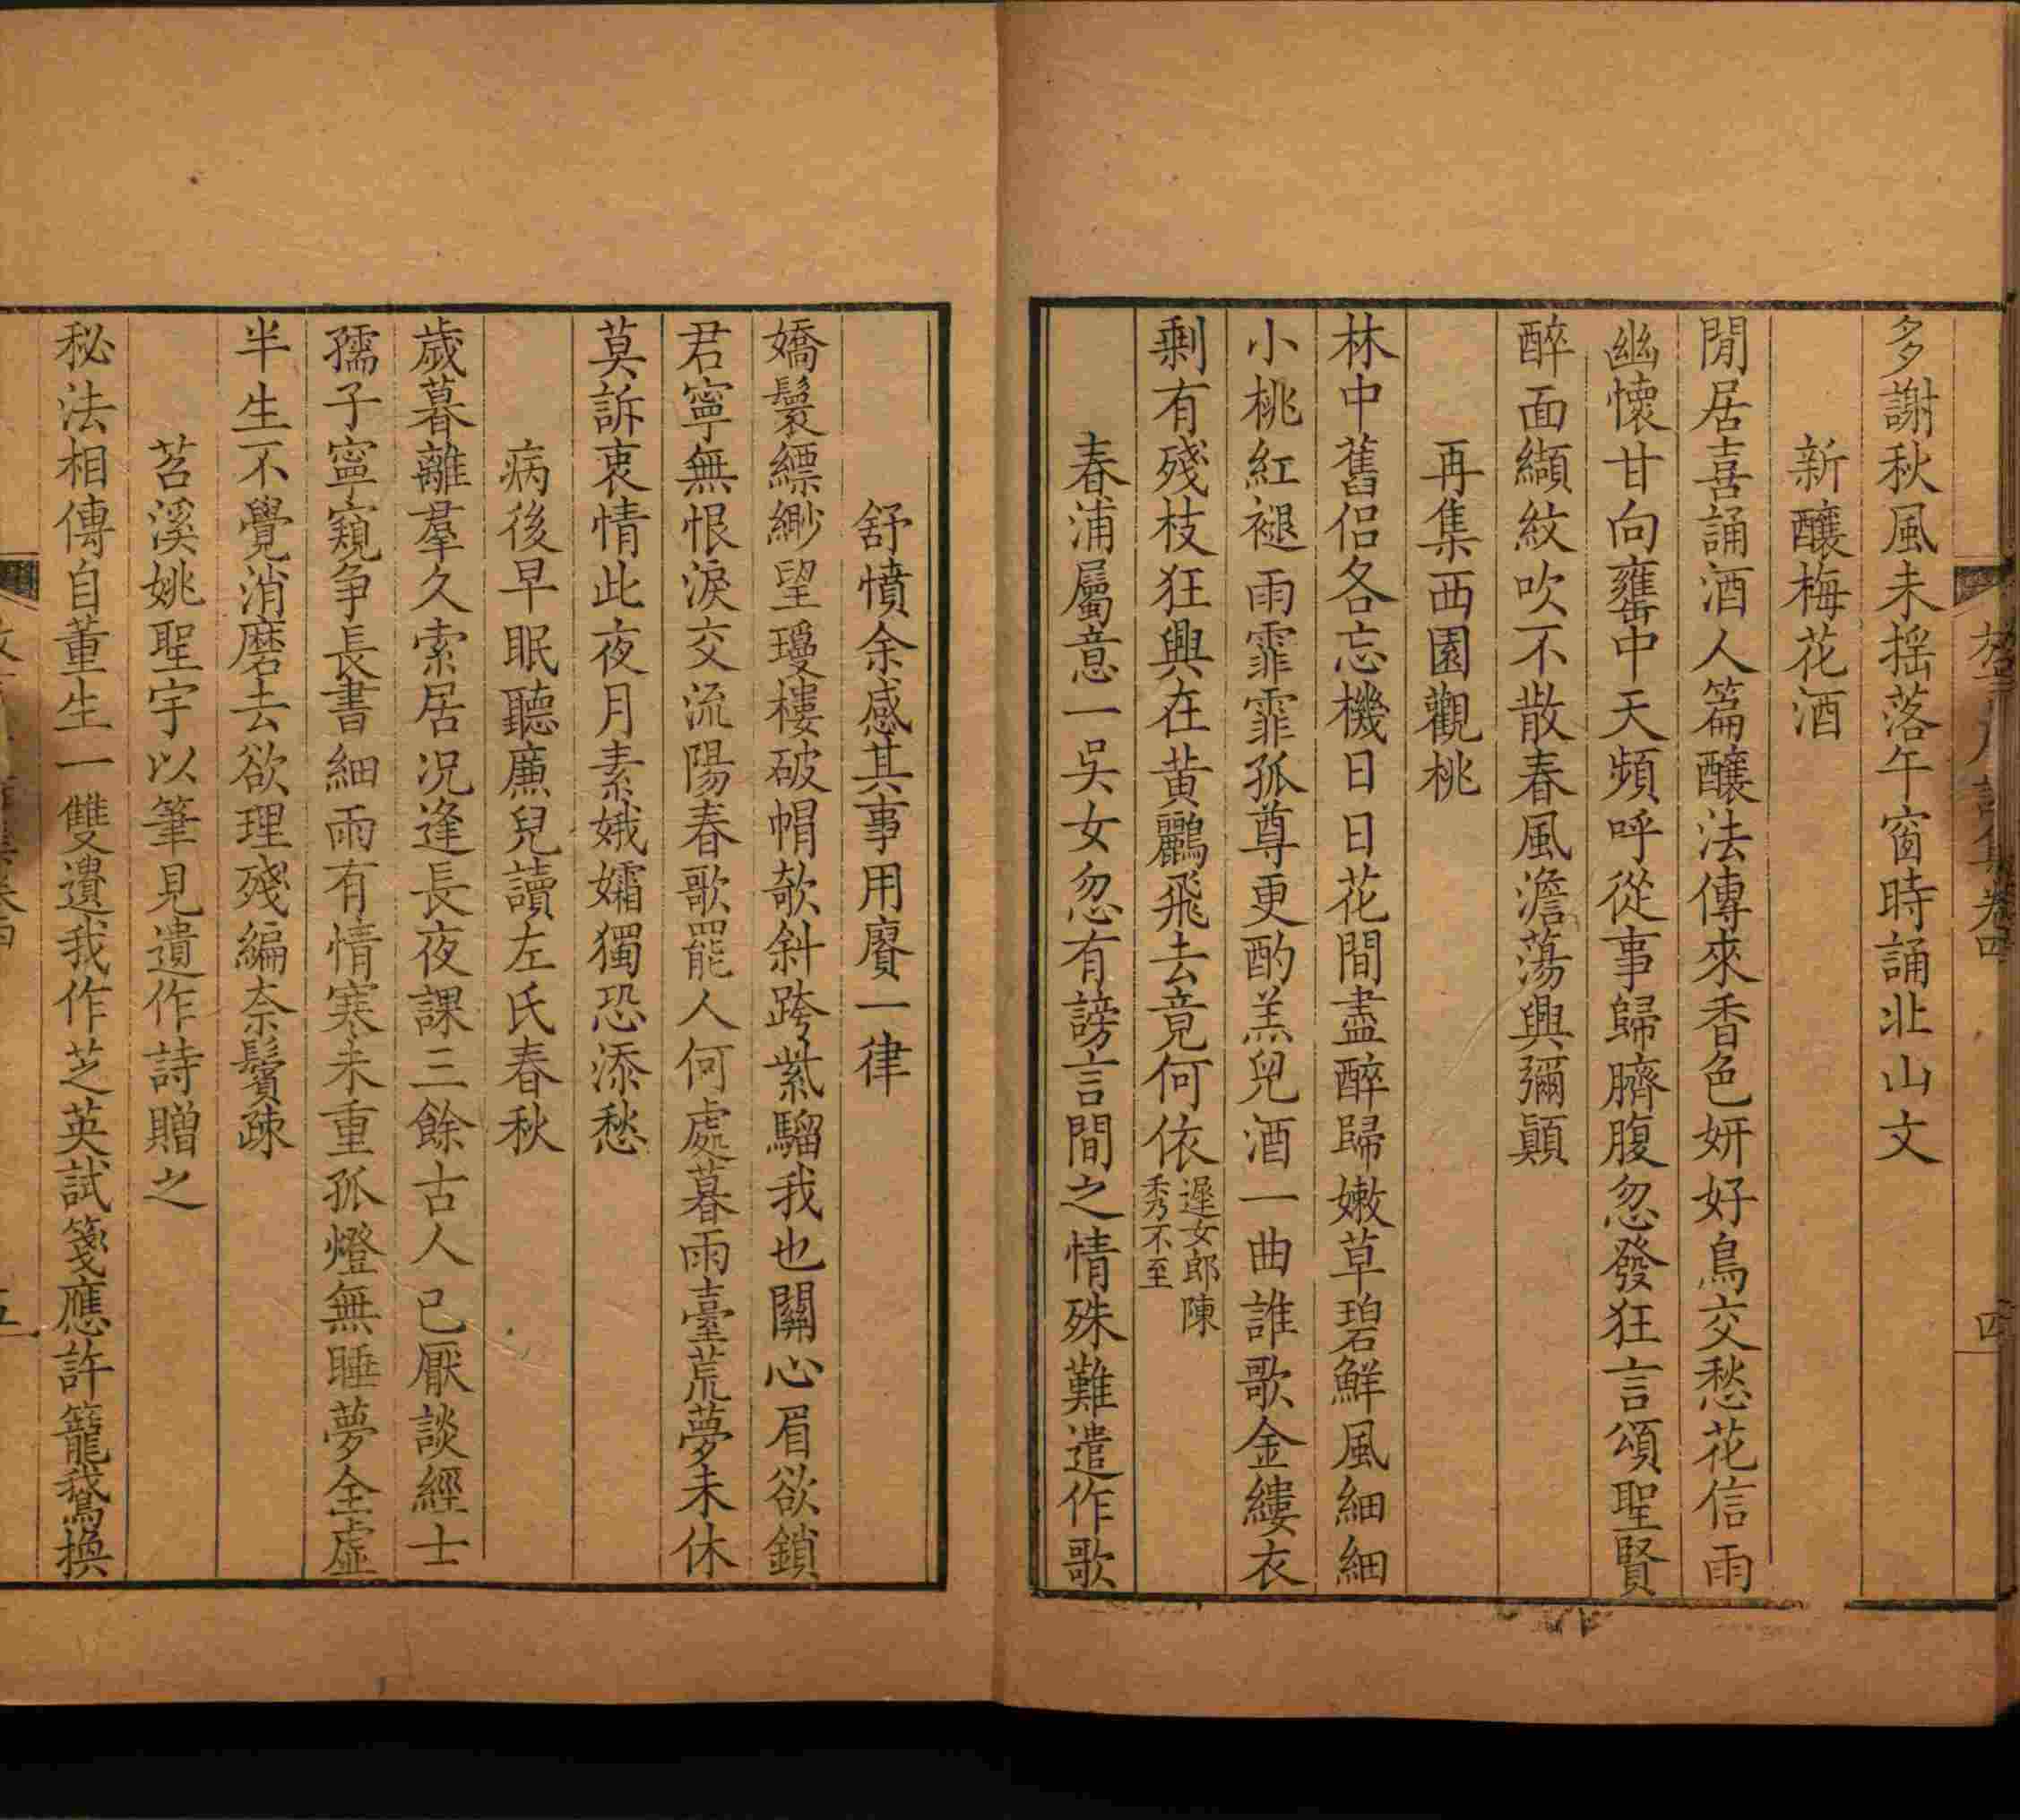 多謝秋風未搖落午窗時誦北山文
新釀梅花酒
閒居喜誦酒人篇釀法傳來香色妍好鳥交愁花信雨
幽懷甘向甕中天頻呼從事歸臍腹忽發狂言頌聖賢
醉面纈紋吹不散春風澹蕩興彌顛
再集西園觀桃
林中舊侶各忘機日日花間盡醉歸嫩草碧鮮風細細
小桃紅褪雨霏霏孤尊更酌羔兒酒一曲誰歌金縷衣
剩有殘枝狂興在黃鸝飛去竟何依遲女郎陳
秀不至
春浦屬意一吳女忽有謗言間之情殊難遣作歌
舒憤余感其事用賡一律
嬌鬟縹緲望瓊樓破帽欹斜跨紫騮我也關心眉欲鎖
君寧無恨淚交流陽春歌罷人何處暮雨臺荒夢未休
莫訴衷情此夜月素娥孀獨恐添愁
病後早眠聽廉兒讀左氏春秋
歲暮離羣久索居况逢長夜課三餘古人已厭談經士
孺子寧窺爭長書細雨有情寒未重孤燈無睡夢全虛
半生不覺消磨去欲理殘編奈鬢疎
苕溪姚聖宇以筆見遺作詩贈之
秘法相傳自董生一雙遺我作芝英試箋應許籠鵞換